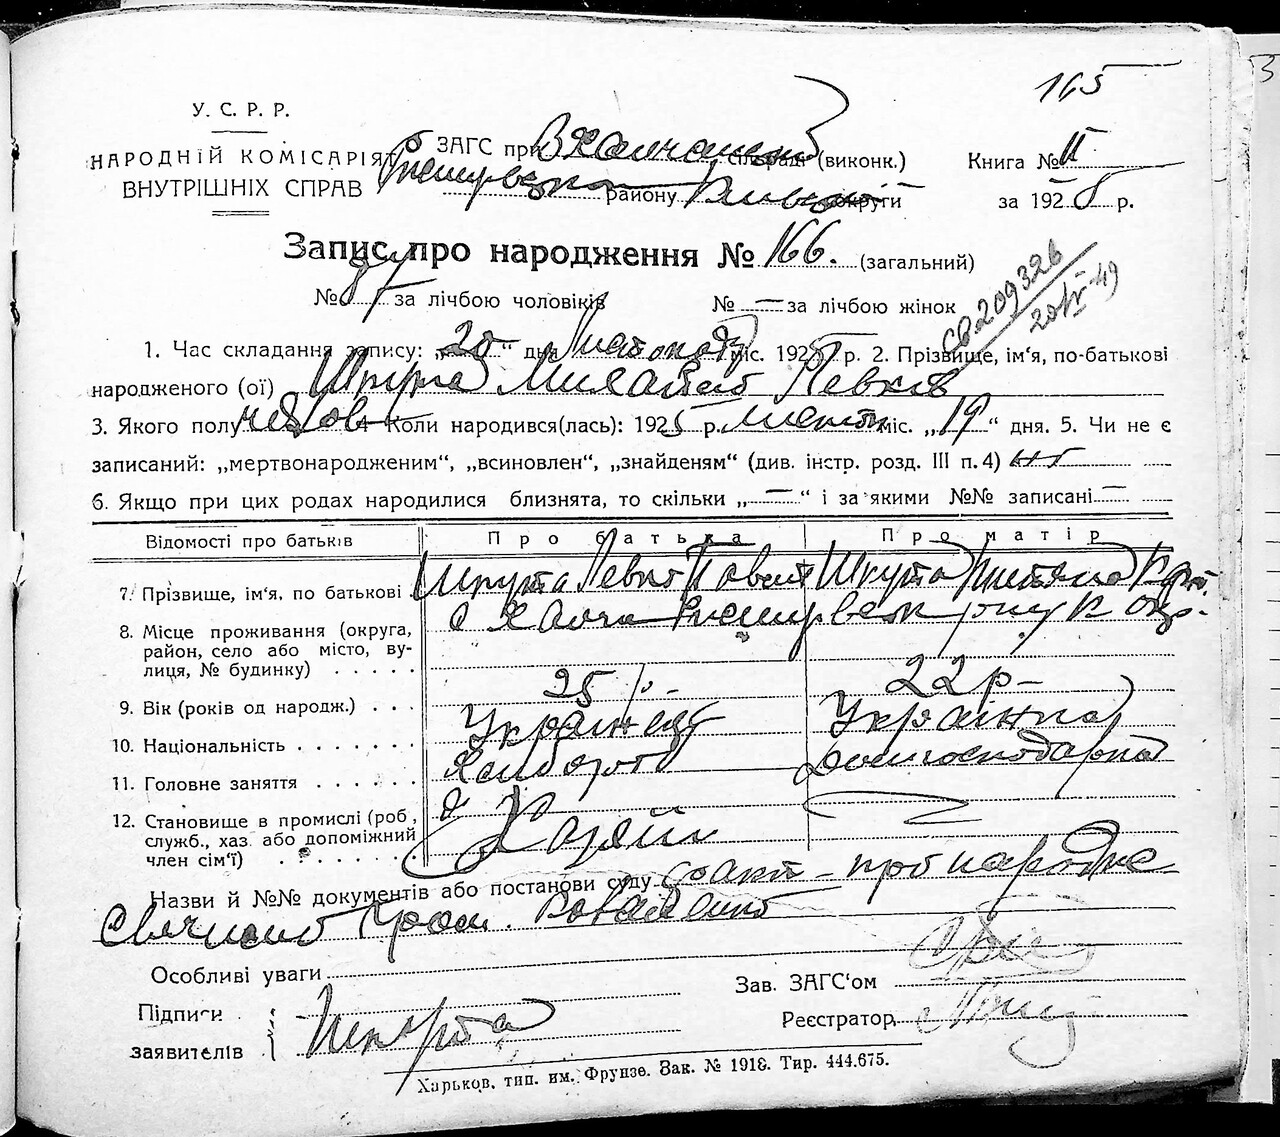 165
У. С. Р. Р.
НАРОДНІЙ КОМІСАРІЯТ
ВНУТРІШНІХ СПРАВ
ЗАГС при (виконк.)
району округи
Книга № II
за 1925 р.
Запис про народження № 166. (загальний)
№ 87 за лічбою чоловіків № — за лічбою жінок
СО 209326
20/IV-49
1. Час складання запису: „20“ дня Листопаду міс. 1925 р. 2. Прізвище, ім‘я, по-батькові
народженого (ої) Шкурта Михайло Левків
3. Якого полу чолов 4. Коли народився(лась): 1925 р. листоп міс. „19“ дня. 5. Чи не є
записаний: „мертвонародженим“, „всиновлен“, „знайденям“ (див. інстр. розд. III п. 4) ні
6. Якщо при цих родах народилися близнята, то скільки „—“ і за якими №№ записані —
Відомості про батьків Про батька Про матір
7. Прізвище, ім‘я, по батькові Шкурта Левко Шкурта
8. Місце проживання (округа,
район, село або місто, ву-
лиця, № будинку)
с Халча
9. Вік (років од народж.) 25 р. 22 р—
10. Національність Українець Українка
11. Головне заняття Хлібороб Домгосподарка
12. Становище в промислі (роб.,
служб., хаз. або допоміжний
член сім‘ї)
Хазяїн
Назви й №№ документів або постанови суду акт – про народже
Особливі уваги
Зав. ЗАГС‘ом
Підписи
заявителів
Шкурта
Реєстратор
Харьков, тип. им. Фрунзе. Зак. № 1918. Тир. 444.675.